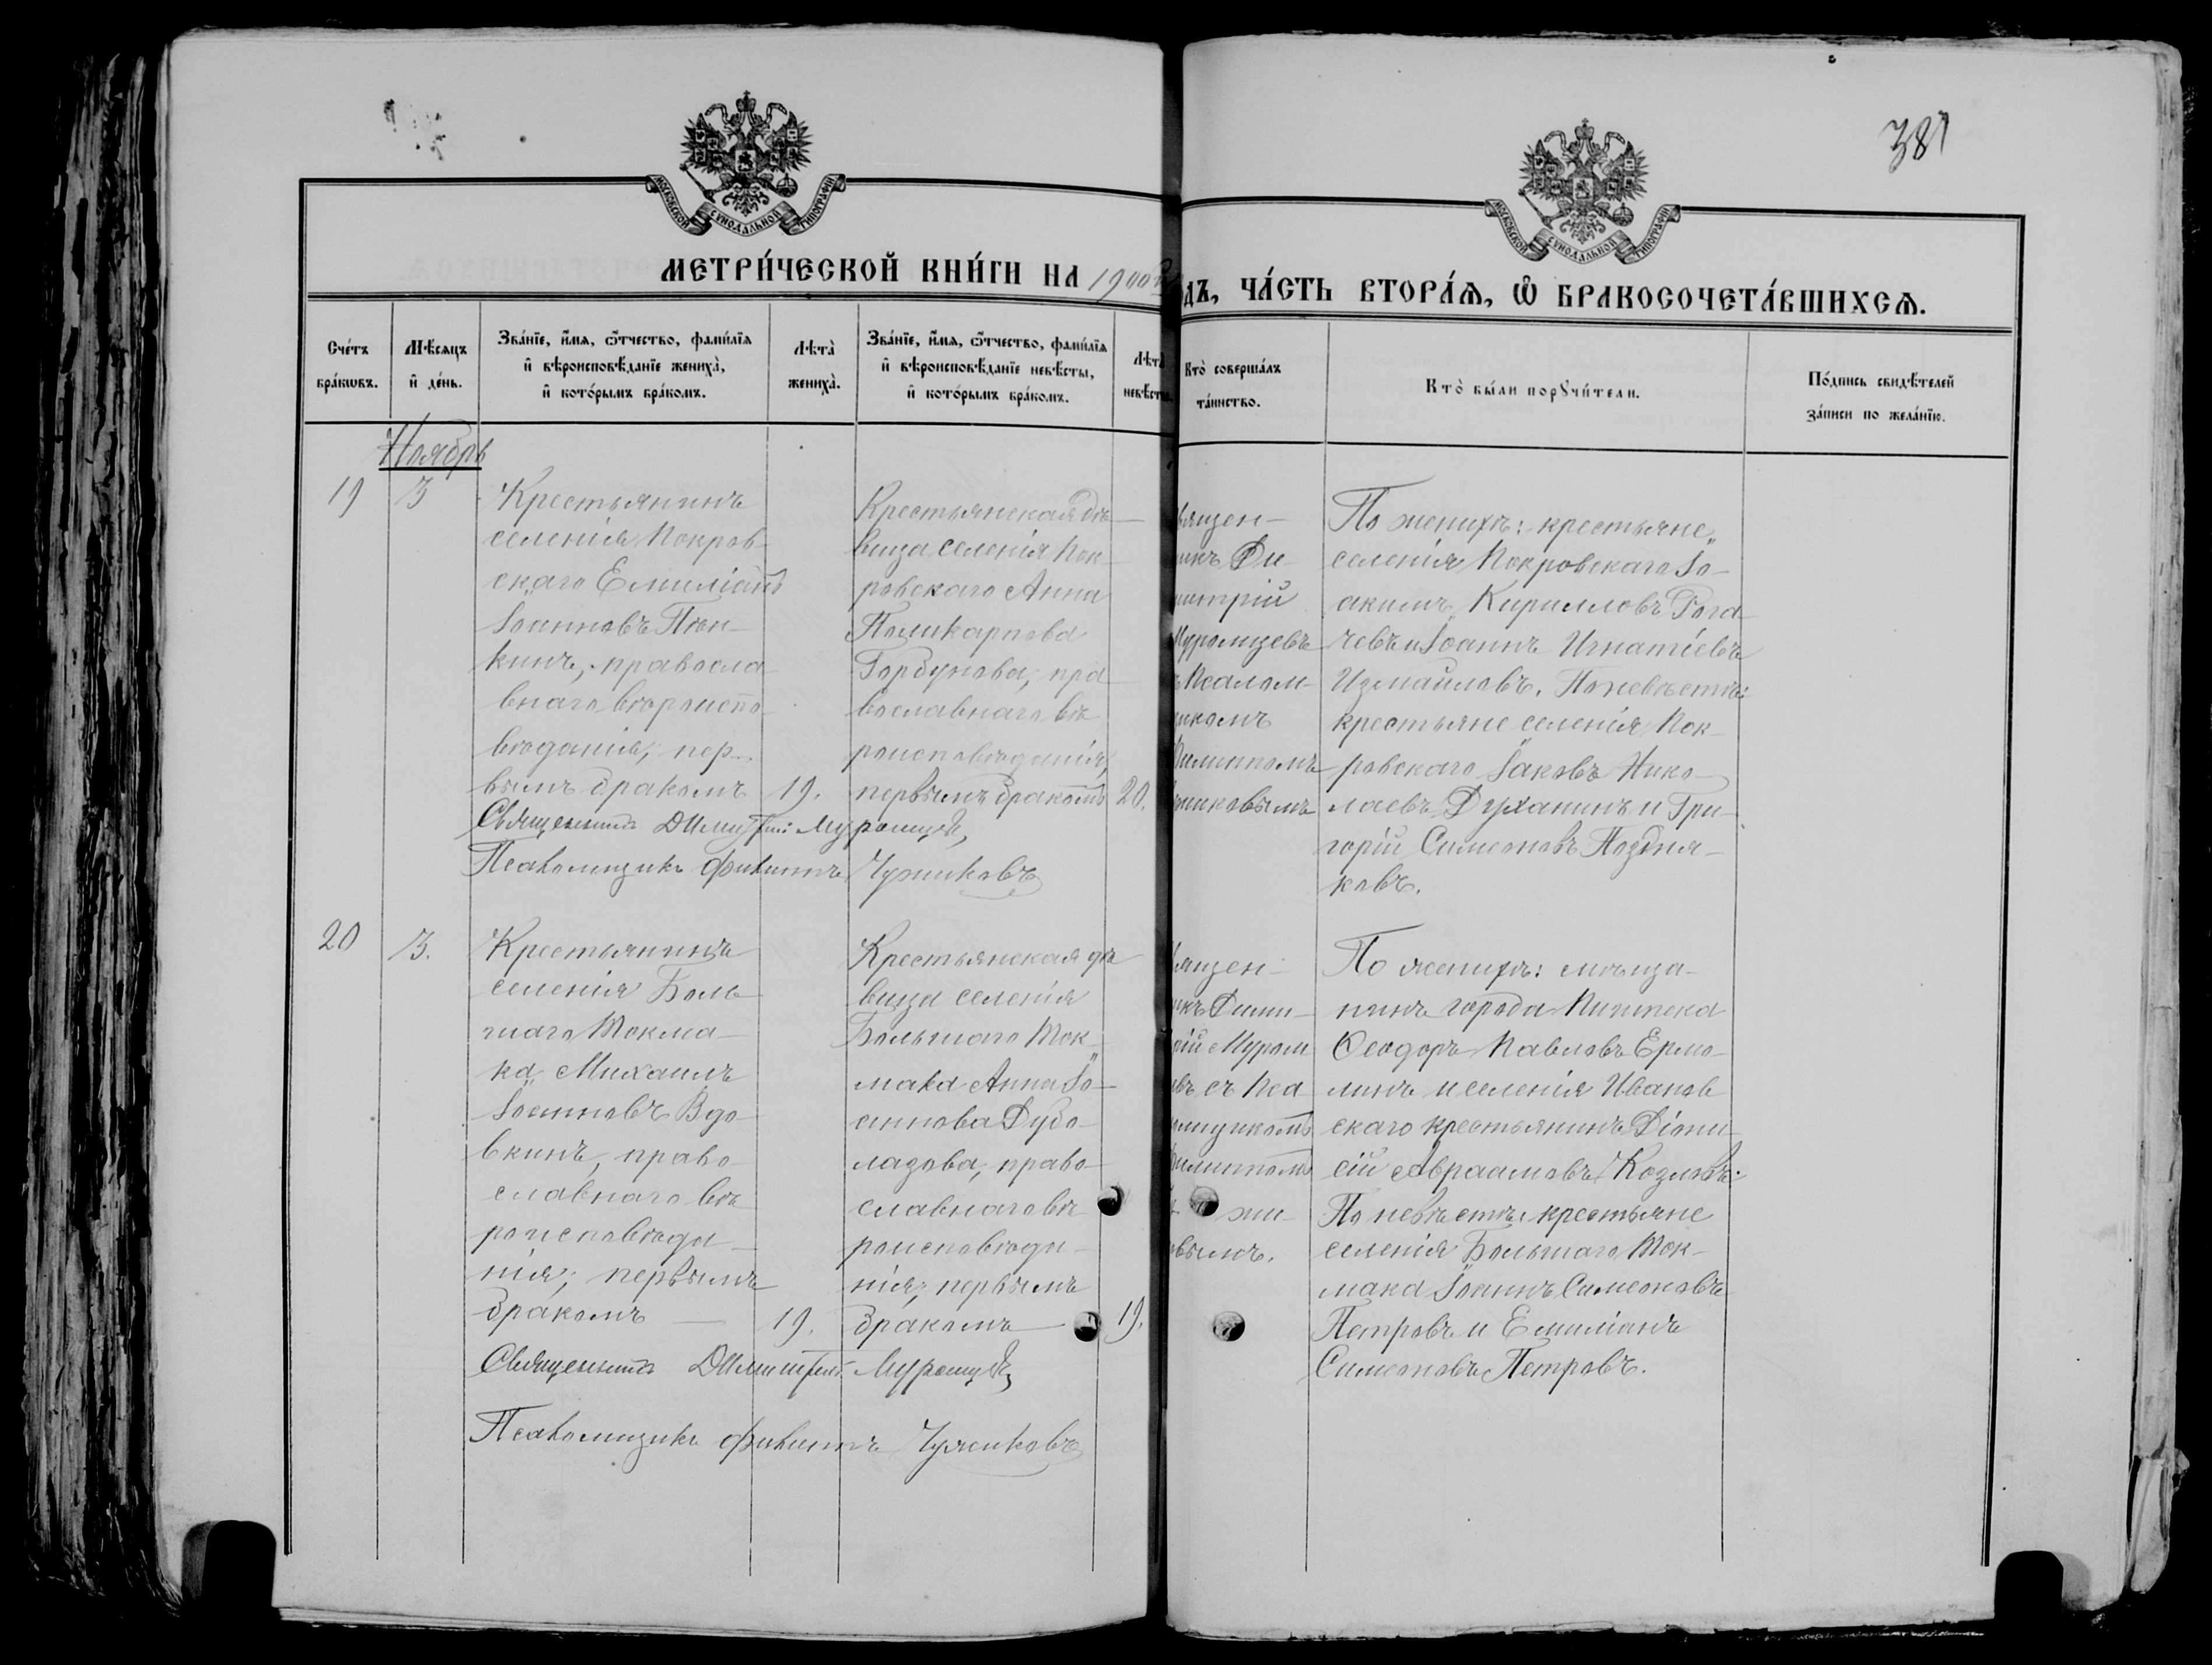 381
МОСКОВСКОЙ СУНОДАЛЬНОЙ ТИПОГРАФІИ
МОСКОВСКОЙ СУНОДАЛЬНОЙ ТИПОГРАФІИ
МЕТРИ́ЧЕСКОЙ КНИ́ГИ НА 1900
ДЪ, ЧА́СТЬ ВТОРА́Ѧ, Ѿ БРАКОСОЧЕТА́ВШИХСѦ.
Сче́тъ бра́кѡвъ.
Мѣ́сѧцъ и҆ де́нь.
Зва́нїе, и҆́мѧ, ѻ҆́тчество, фами́лїѧ
и҆ вѣроисповѣ́данїе жениха̀,
и҆ кото́рымъ бра́комъ.
Лѣта̀
жениха̀.
Зва́нїе, и҆́мѧ, ѻ҆́тчество, фами́лїѧ
и҆ вѣроисповѣ́данїе невѣ́сты,
и҆ кото́рымъ бра́комъ.
Лѣта̀
невѣ́ст
Кто̀ соверша́лъ
та́инство.
Кто̀ бы́ли порꙋчи́тели.
По́дпись свидѣ́телей
за́писи по жела́нїю.
Ноябрь
19
3
Крестьянинъ
селенія Покров-
скаго Емиліанъ
Іоанновъ Пюн-
кинъ, правосла
внаго вѣроиспо
вѣданія, пер-
вымъ бракомъ
19.
Крестьянская дѣ-
вица селенія Пок-
ровскаго Анна
Поликарпова
Горбунова, пра
вославнаго вѣ
роисповѣданія,
первымъ бракомъ
20.
вящен-
икъ Ди-
митрій
Муромцевъ
ъ Псалом-
икомъ
Филиппомъ
жиковымъ
По женихѣ: крестьяне
селенія Покровскаго Іо-
акимъ Кирилловъ Рога-
чевъ и Іоаннъ Игнатіевъ
Измаиловъ. По невѣстѣ:
крестьяне селенія Пок-
ровскаго Іаковъ Нико-
лаевъ Духанинъ и Гри-
горій Симеоновъ Поздня-
ковъ.
Священникъ Димитрій Муромцевъ,
Псаломщикъ Филиппъ Чужиковъ
20
3.
Крестьянинъ
селенія Боль-
шаго Токма-
ка Михаилъ
Іоанновъ Вдо-
вкинъ, право-
славнаго вѣ
роисповѣда-
нія, первымъ
бракомъ
19.
Крестьянская дѣ
вица селенія
Большаго Ток-
мака Анна Іо-
аннова Дубо-
лазова, право-
славнаго вѣ
роисповѣда-
нія, первымъ
бракомъ
19.
вящен-
икъ Дими-
рій Муром
евъ съ Пса
омщикомъ
Филиппомъ
жи-
овымъ.
По женихѣ: мѣща-
нинъ города Пишпека
Ѳеодоръ Павловъ Ермо-
линъ и селенія Иванов
скаго крестьянинъ Діони-
сій Авраамовъ Козловъ.
По невѣстѣ: крестьяне
селенія Большаго Ток-
мака Іоаннъ Симеоновъ
Петровъ и Емиліанъ
Симеоновъ Петровъ.
Священникъ Димитрій Муромцевъ,
Псаломщикъ Филиппъ Чужиковъ